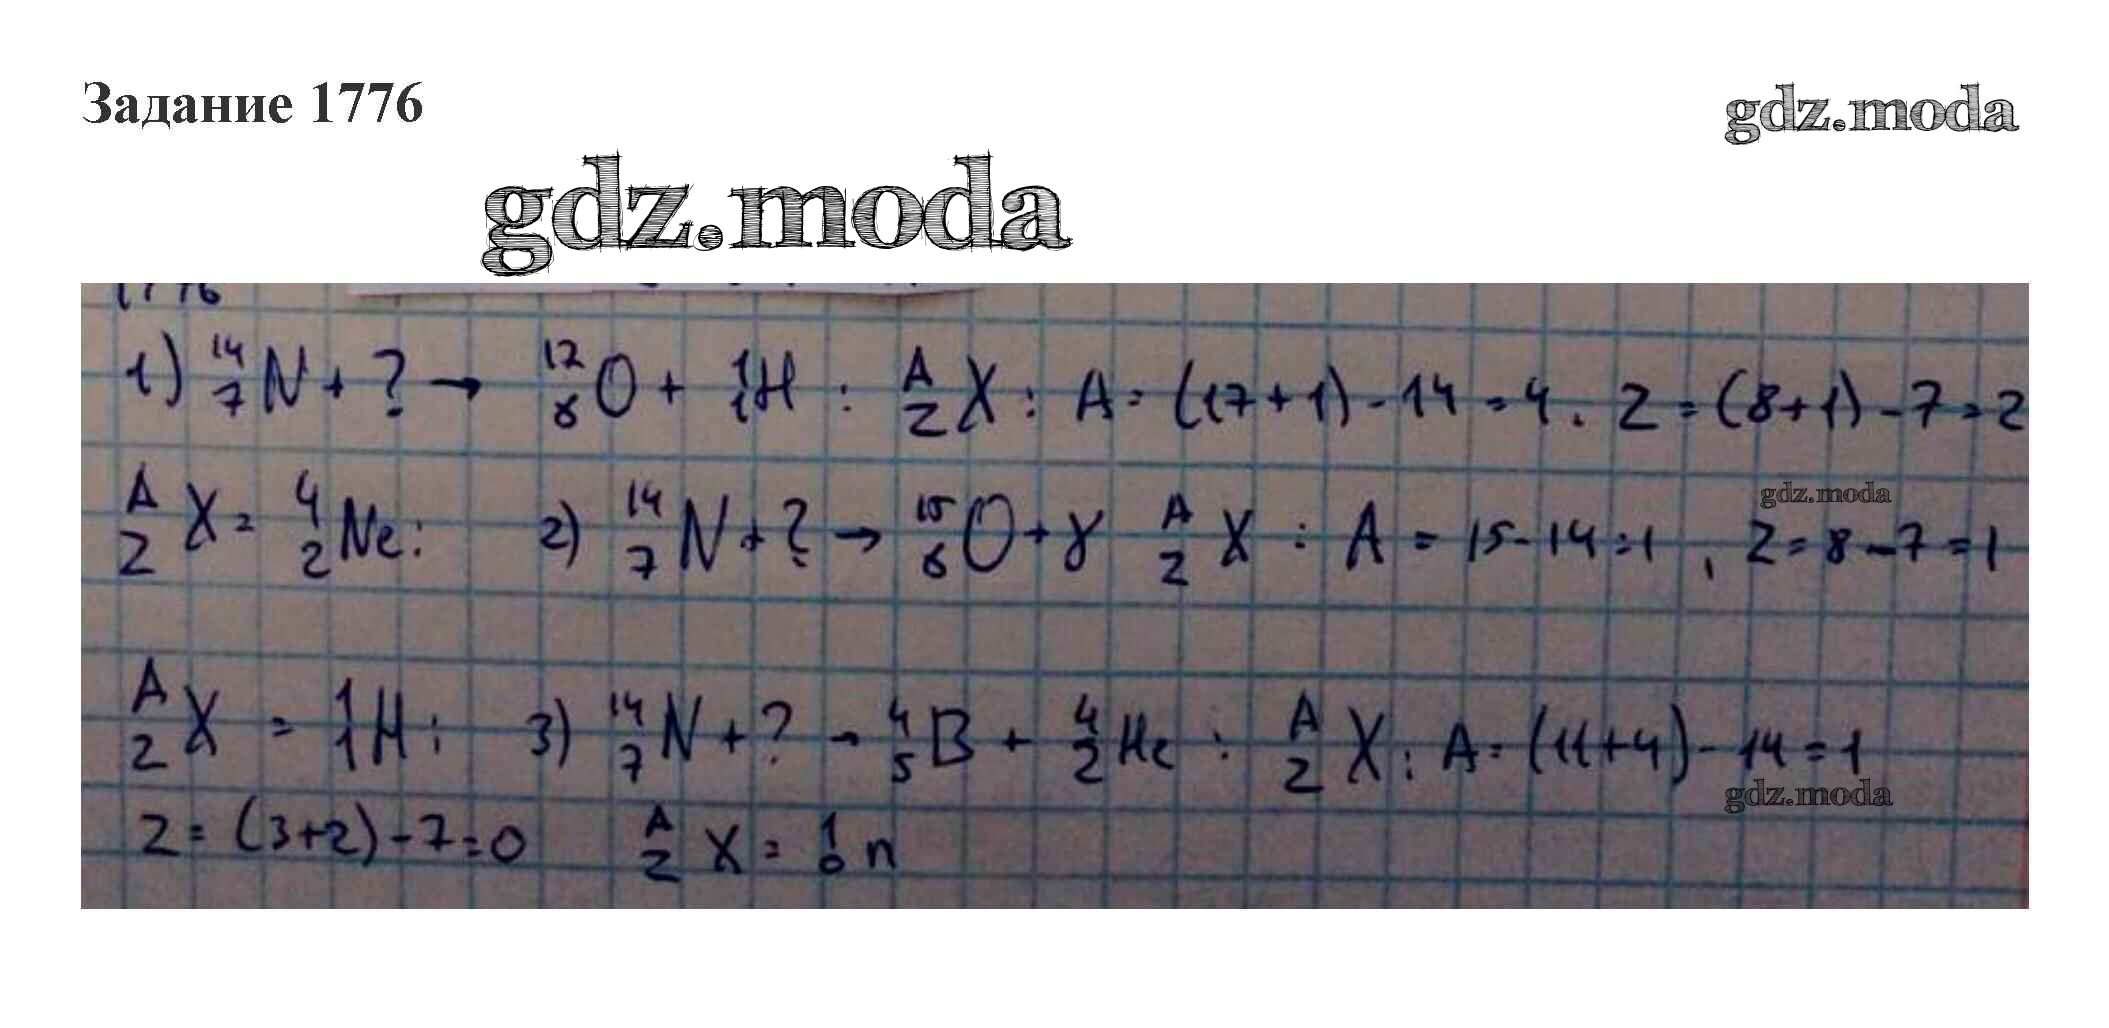 Задание 1776
gdz.moda
gdz.moda
1776
1) ¹⁴₇N + ? → ¹⁷₈O + ¹₁H : ᴬ_Z X : A = (17+1) - 14 = 4 . Z = (8+1) - 7 = 2
ᴬ_Z X = ⁴₂He : 2) ¹⁴₇N + ? → ¹⁵₈O + γ ᴬ_Z X : A = 15 - 14 = 1 , Z = 8 - 7 = 1
gdz.moda
ᴬ_Z X = ¹₁H ; 3) ¹⁴₇N + ? → ⁴₅B + ⁴₂He : ᴬ_Z X : A = (11+4) - 14 = 1
gdz.moda
Z = (3+2) - 7 = 0 ᴬ_Z X = ¹₀n